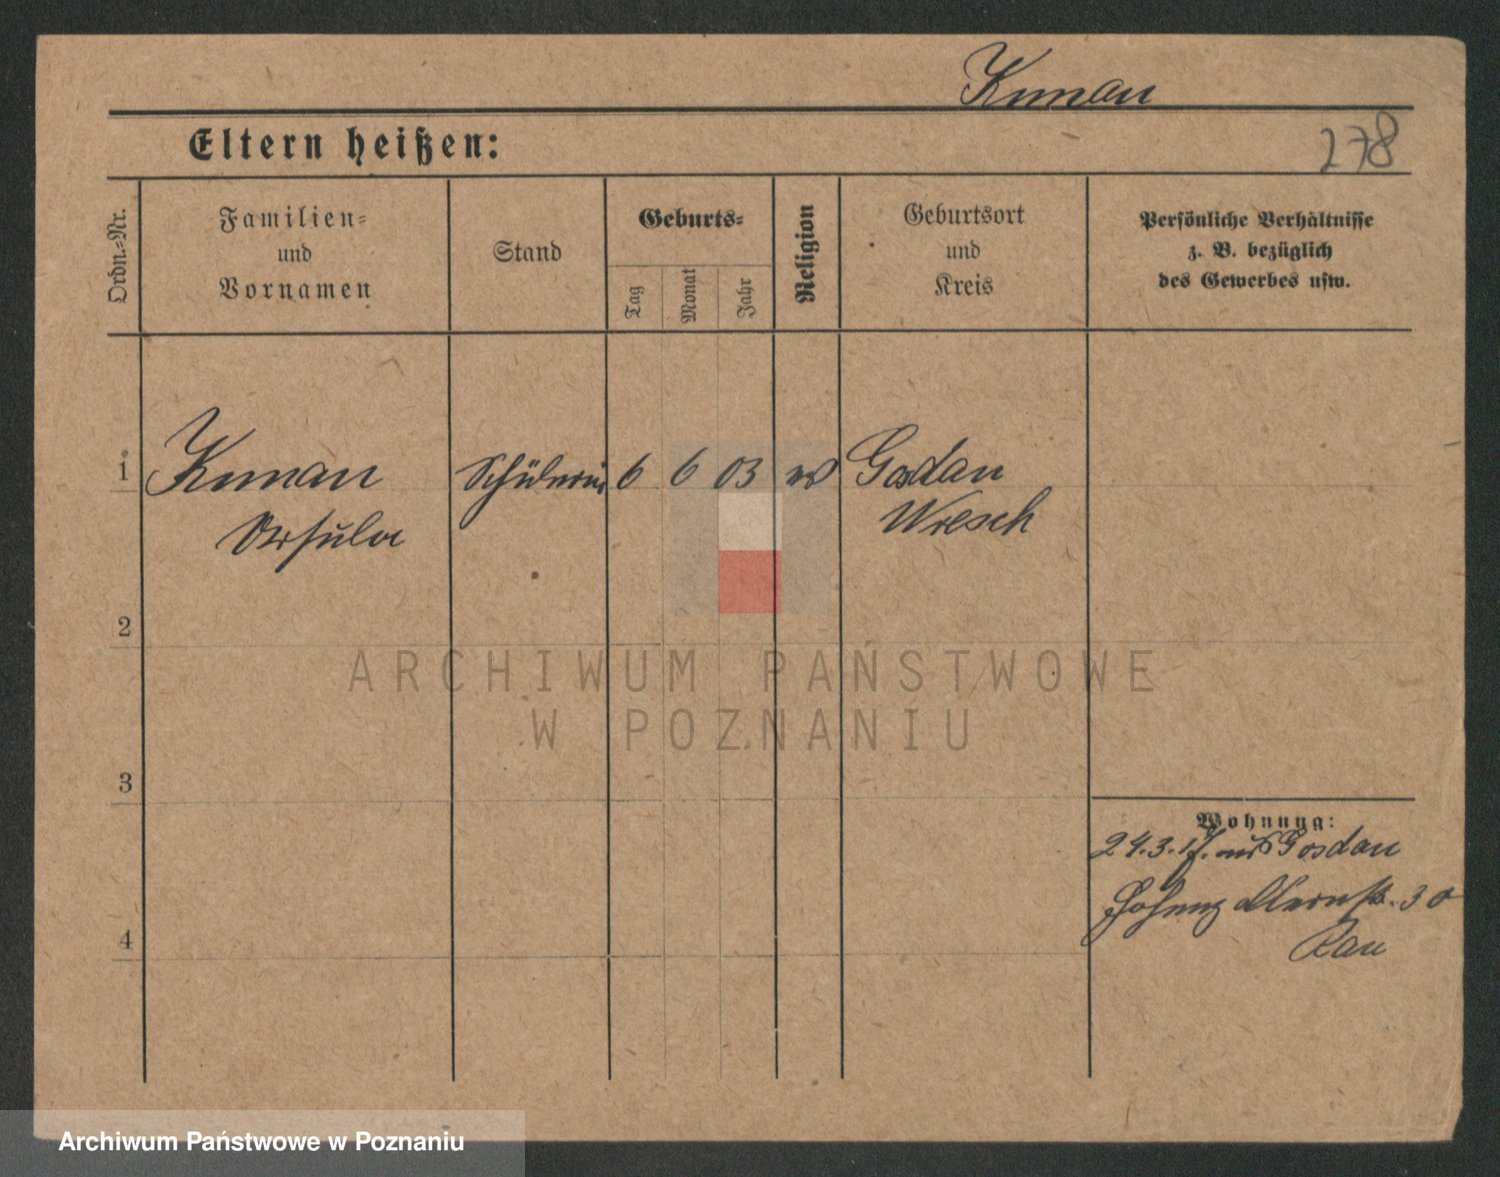 Kunau
Eltern heißen:
278
Ordn.=Nr.
Familien=
und
Vornamen
Stand
Geburts=
Tag
Monat
Jahr
Religion
Geburtsort
und
Kreis
Persönliche Verhältnisse
z. B. bezüglich
des Gewerbes usw.
1
Kunau
Ursula
Schülerin
6
6
03
ev
Gosdau
Wresch
2
3
4
Wohnung:
24.3.17. aus Gosdau
Hohenzollernstr. 30
Rau
ARCHIWUM PAŃSTWOWE
W POZNANIU
Archiwum Państwowe w Poznaniu